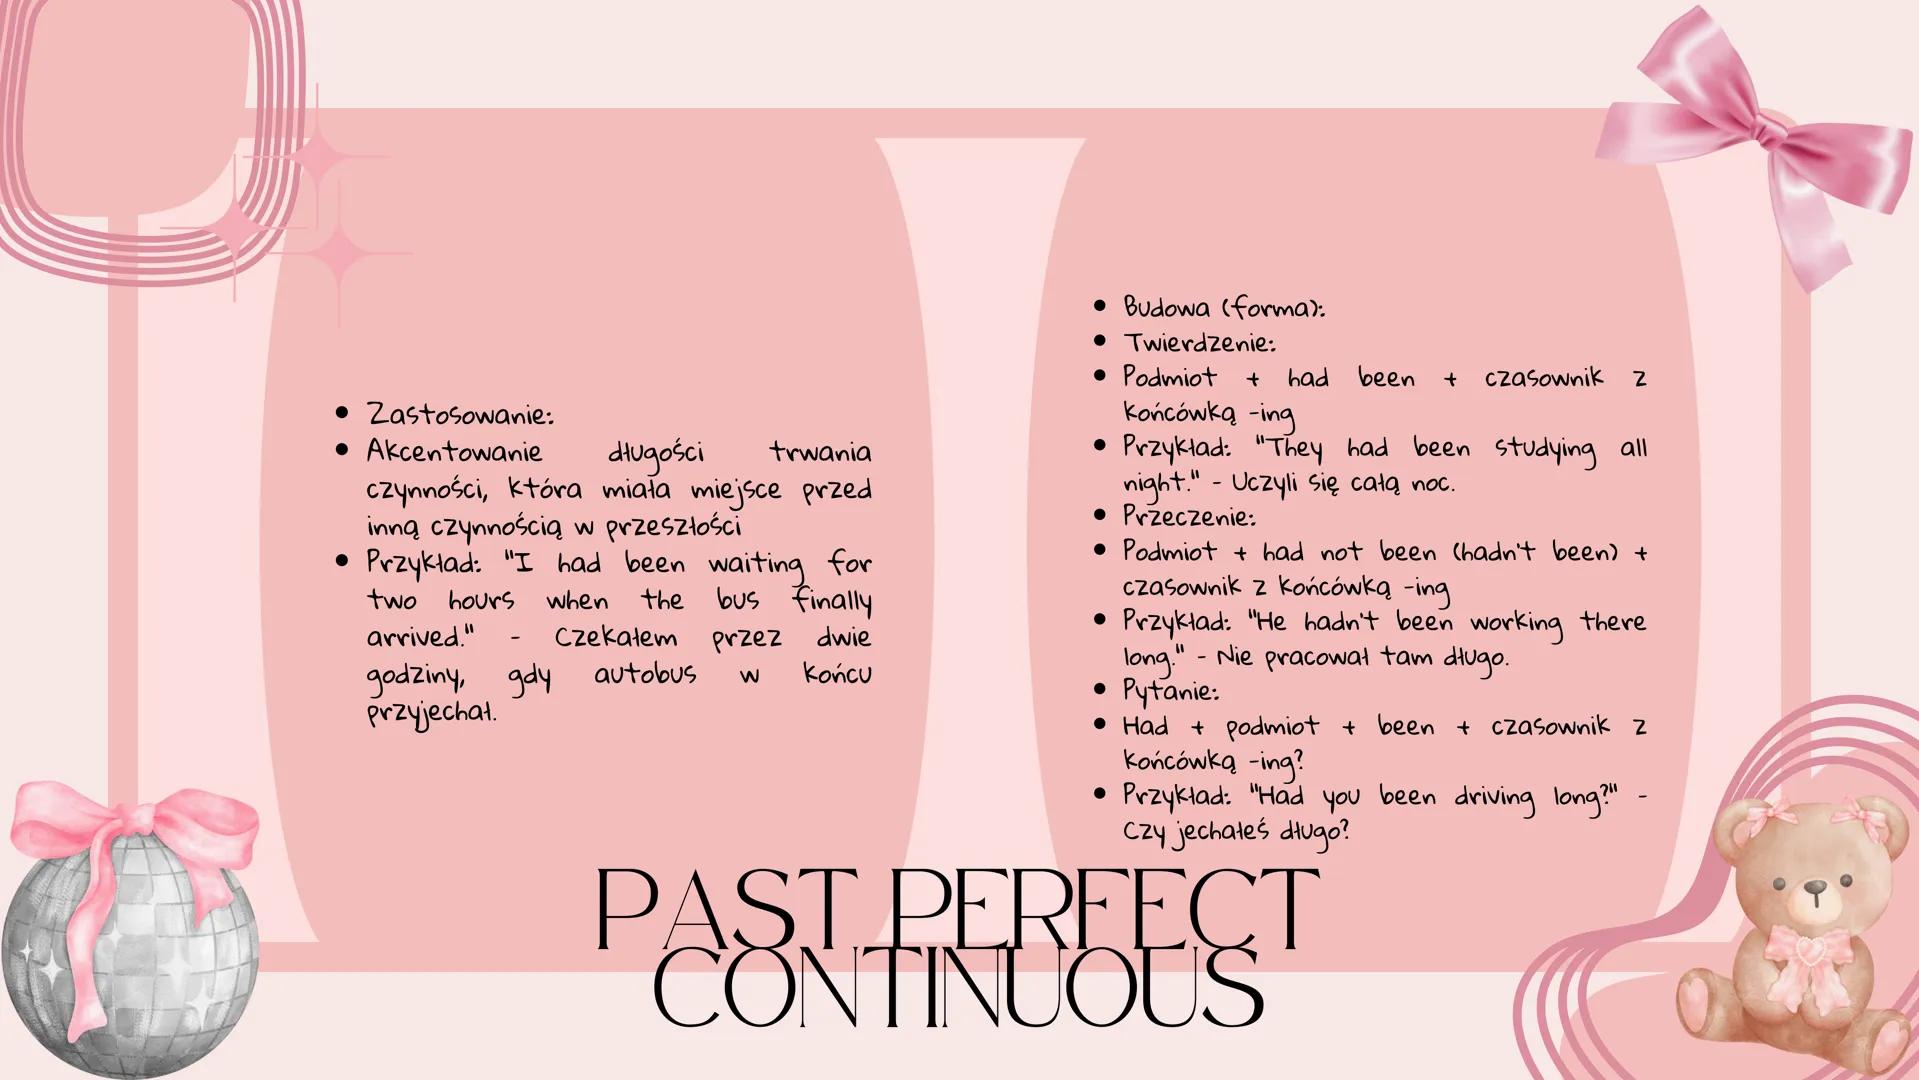 Zastosowanie:
Akcentowanie długości trwania
czynności, która miała miejsce przed
inną czynnością w przeszłości
Przykład: "I had been waiting for
two hours when the bus finally
arrived." - Czekałem przez dwie
godziny, gdy autobus w końcu
przyjechał.
Budowa (forma):
Twierdzenie:
Podmiot + had been + czasownik z
końcówką -ing
Przykład: "They had been studying all
night." - Uczyli się całą noc.
Przeczenie:
Podmiot + had not been (hadn't been) +
czasownik z końcówką -ing
Przykład: "He hadn't been working there
long." - Nie pracował tam długo.
Pytanie:
Had + podmiot + been + czasownik z
końcówką -ing?
Przykład: "Had you been driving long?" -
Czy jechałeś długo?
PAST PERFECT
CONTINUOUS